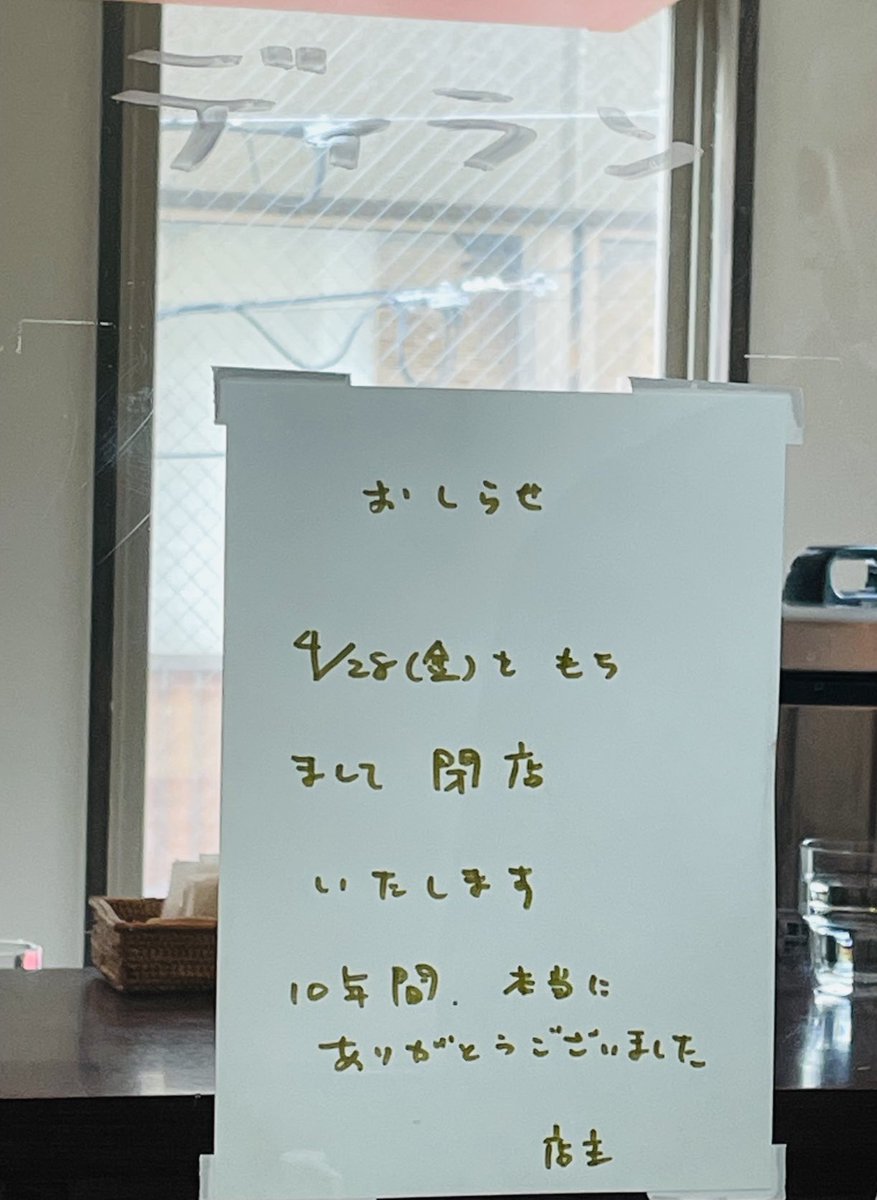 ディラン
おしらせ
4/28(金)ともち
まして 閉店
いたします
10年間. 本当に
ありがとうございました
店主